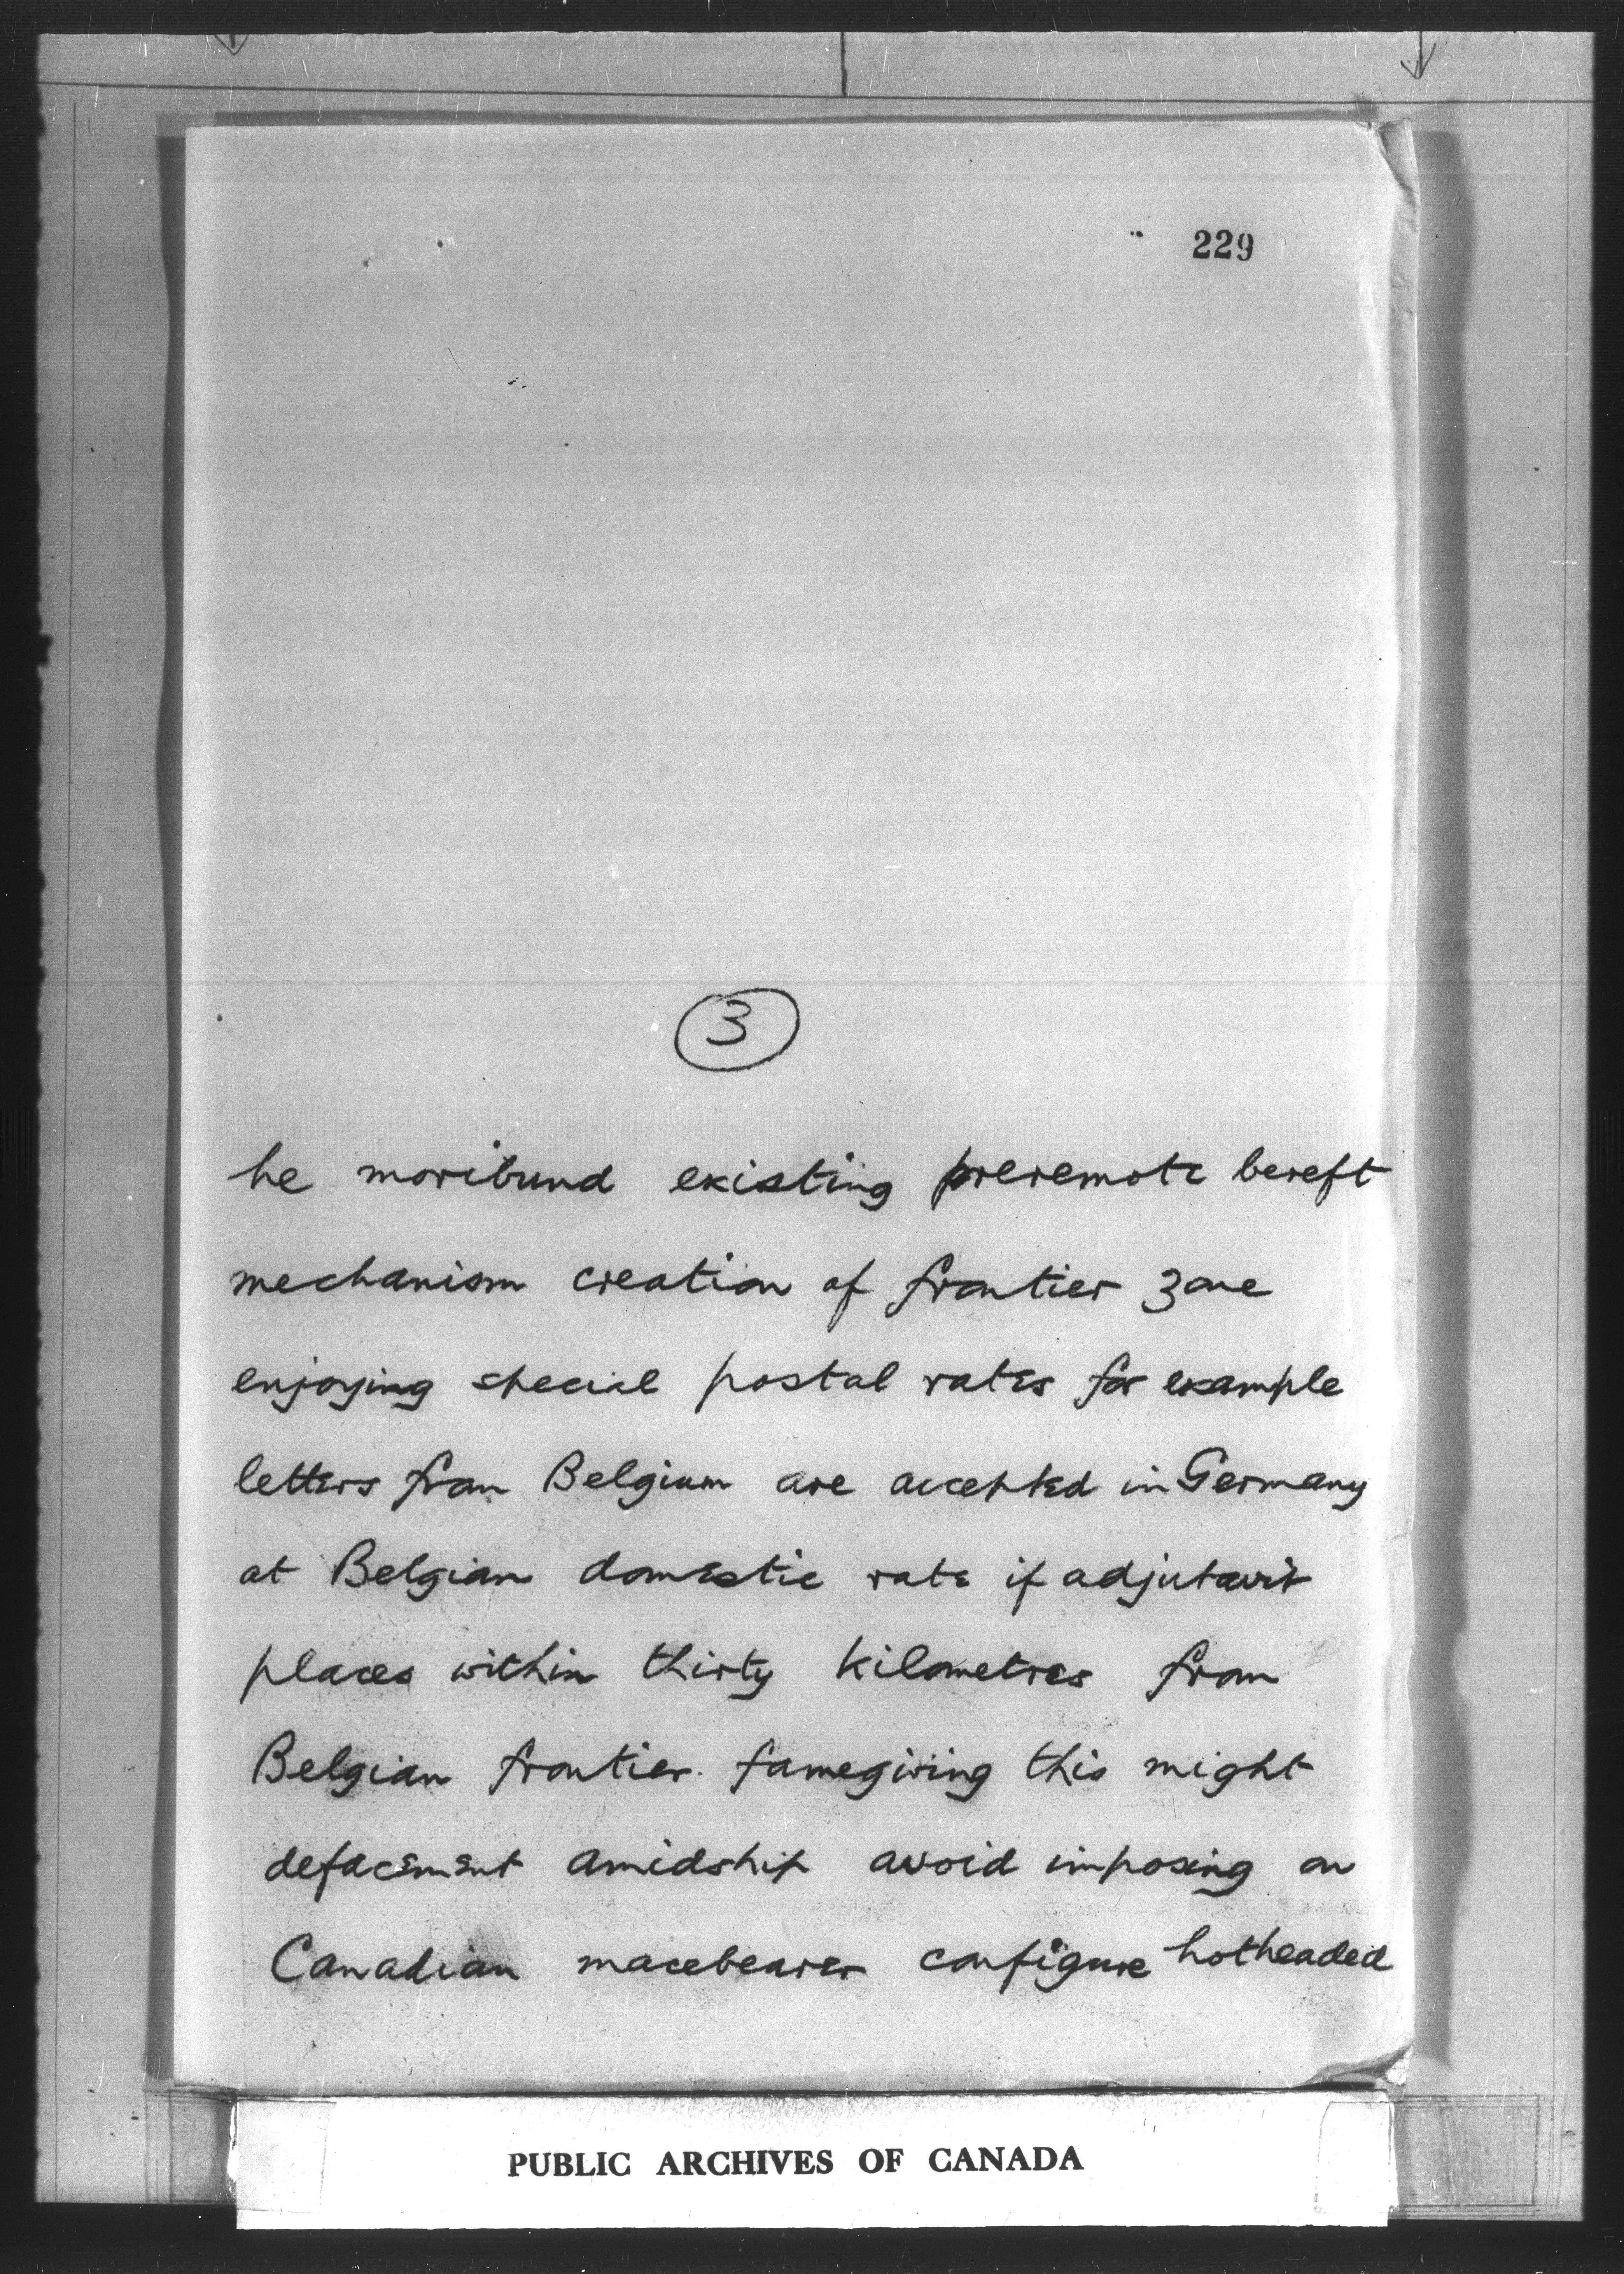 229
3
he moribund existing preremote bereft
mechanism creation of frontier zone
enjoying special postal rates for example
letters from Belgium are accepted in Germany
at Belgian domestic rate if adjutavit
places within thirty kilometres from
Belgian frontier. famegiving this might
defacement amidship avoid imposing on
Canadian macebearer configure hotheaded
PUBLIC ARCHIVES OF CANADA